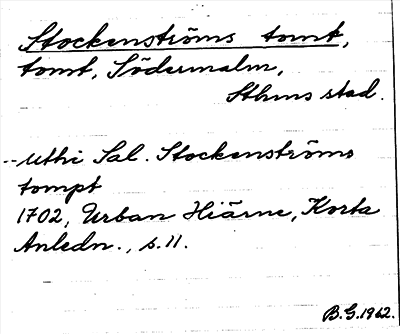 Stockenströms tomt,
tomt, Södermalm,
Sthms stad.
-- uthi Sal. Stockenströms
tompt
1702, Urban Hiärne, Korta
Anledn., s. 11.
B.G. 1962.